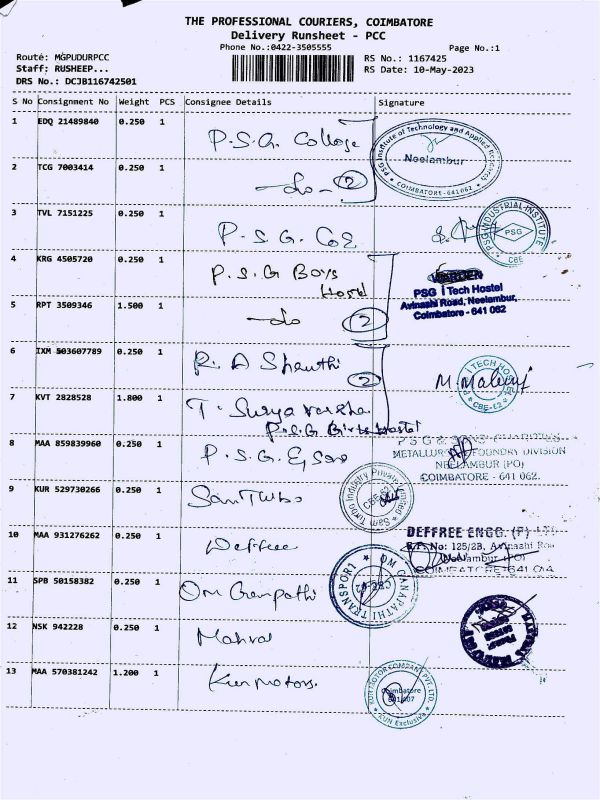 THE PROFESSIONAL COURIERS, COIMBATORE
Delivery Runsheet - PCC
Phone No.:0422-3505555 Page No.:1
Route: MGPUDURPCC RS No.: 1167425
Staff: RUSHEEP... RS Date: 10-May-2023
DRS No.: DCJB116742501
S No Consignment No Weight PCS Consignee Details Signature
1 EDQ 21489840 0.250 1 P.S.G. College
PSG Institute of Technology and Applied Research
Neelambur
COIMBATORE-641062
2 TCG 7003414 0.250 1 -do- 2
3 TVL 7151225 0.250 1 P.S.G. COE
PSG INDUSTRIAL INSTITUTE
PSG
CBE
4 KRG 4505720 0.250 1 P.S.G Boys
Hostel
WARDEN
PSG iTech Hostel
Avinashi Road, Neelambur,
Coimbatore - 641 062
5 RPT 3509346 1.500 1 -do 2
6 IXM 503607789 0.250 1 R. A Shanthi
2
I TECH
CBE-62
7 KVT 2828528 1.800 1 T. Surya varsha
P.S.G Girls Hostel
8 MAA 859839960 0.250 1 P.S.G. & Sons
P S G & SONS CHARITIES
METALLURGY FOUNDRY DIVISION
NEELAMBUR (PO)
COIMBATORE - 641 062.
9 KUR 529730266 0.250 1 SamTurbo
Sam Turbo Industry Private Limited
CBE-62
10 MAA 931276262 0.250 1 Deffree
DEFFREE ENGG. (P)
No: 125/2B, Avinashi Roa
Neelambur (PO)
11 SPB 50158382 0.250 1 Om Ganpathi
OM GANAPATHI TRANSPORT
CBE-62
12 NSK 942228 0.250 1
13 MAA 570381242 1.200 1 Kun motors.
KUN MOTOR COMPANY PVT. LTD.
Coimbatore
KUN Exclusive